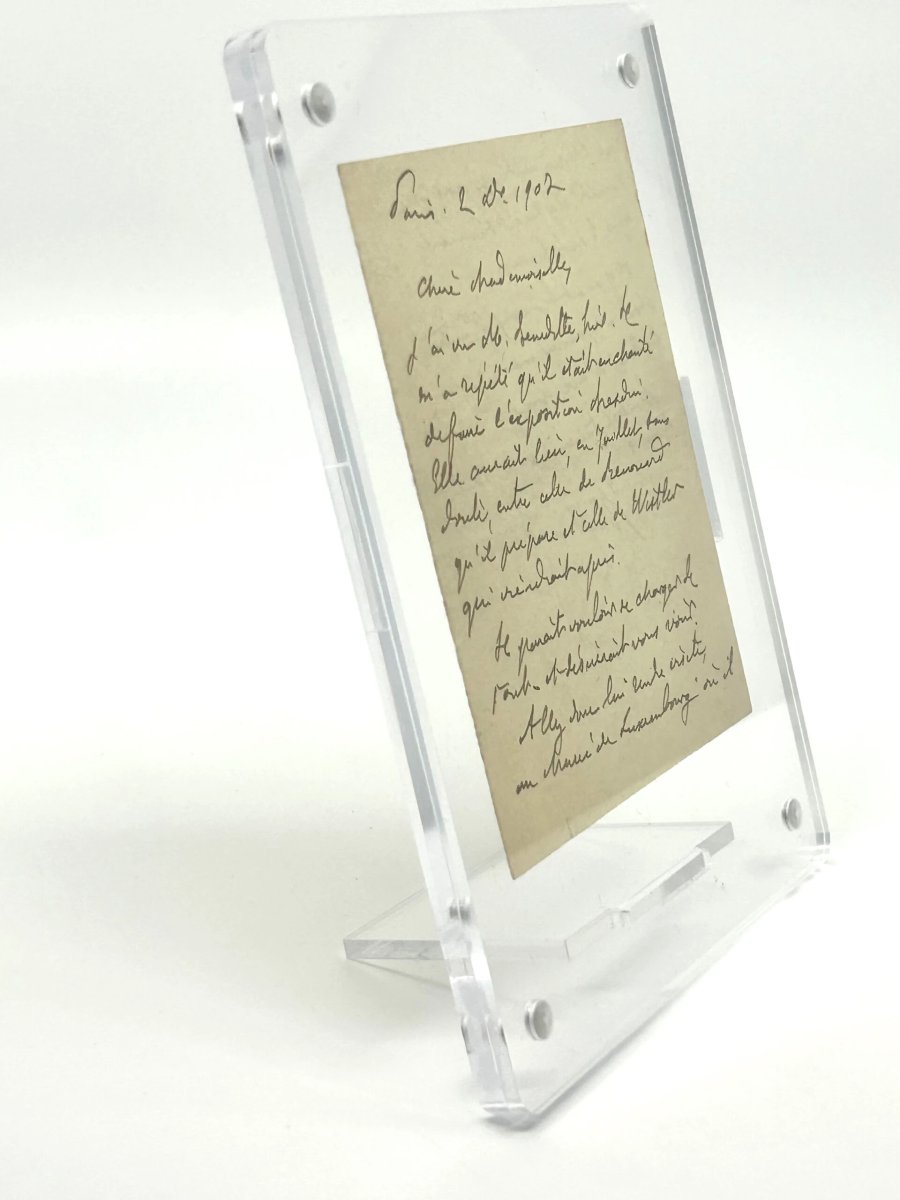 Paris. 2 Dbr. 1902
Chère Mademoiselle,
J'ai vu M. Benedite, hier. Il
m'a répété qu'il était enchanté
de faire l'exposition
Elle aurait lieu, en Juillet, sans
doute, entre celle de Renouard
qu'il prépare et celle de Wistler
qui viendrait après.
Il parait vouloir se charger de
tout et désirerait vous voir.
Allez donc lui rendre visite,
au Musée du Luxembourg où il